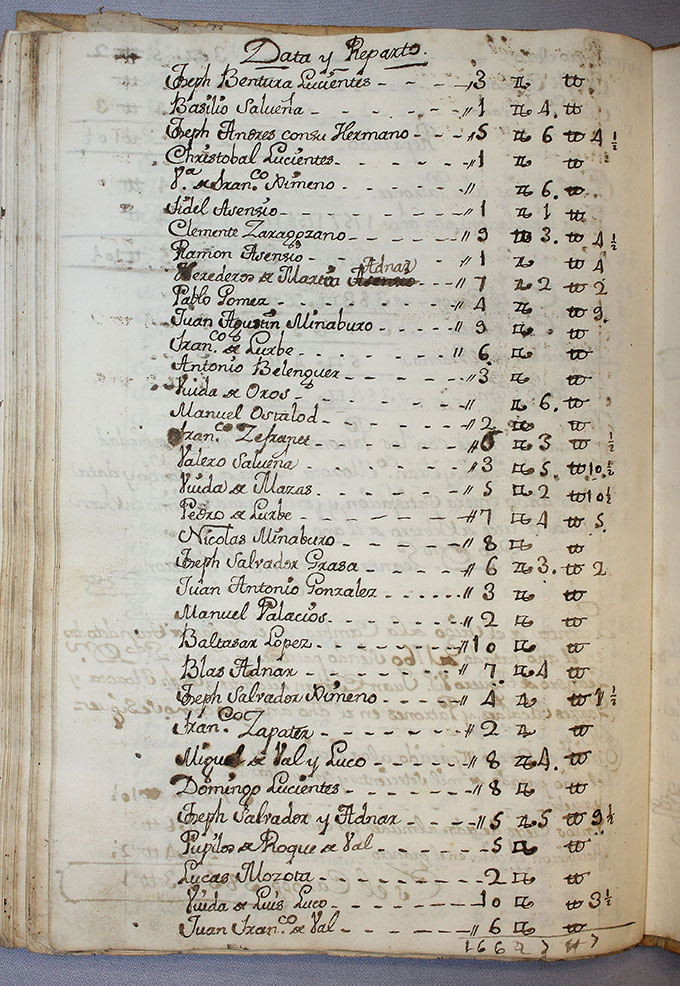 Data y Reparto.
Jseph Bentura Lucientes - - - - - „ 3 n tt
Basilio Salueña - - - - - - - „ 1 n 4. tt
Jseph Andres consu Hermano - - - - „ 5 n 6 tt 4 ½
Christobal Lucientes - - - - - - „ 1 n tt
V.ª de Fran.co Ximeno - - - - - - „ n 6. tt
Fidel Asensio - - - - - - - „ 1 n 1 tt
Clemente Zaragozano - - - - - - „ 9 tt 3. tt 4 ½
Ramon Asensio - - - - - - - „ 1 n tt 4
Herederos de Martin Adnar - - - „ 7 n 2 tt 2
Pablo Gomez - - - - - - - - „ 4 n tt 9
Juan Agustin Minaburo - - - - „ 9 n tt
Fran.co de Lurbe - - - - - - „ 6 n tt
Antonio Belenguer - - - - - - „ 3 n tt
Viuda de Oros - - - - - - - „ n 6. tt
Manuel Ostalod - - - - - - - „ 2 n tt
Fran.co Zefranet - - - - - - „ 6 n 3 tt ½
Valero Salueña - - - - - - - „ 3 n 5 tt 10 ½
Viuda de Mazas - - - - - - - „ 5 n 2 tt 10 ½
Pedro de Lurbe - - - - - - - „ 7 n 4 tt 5
Nicolas Minaburo - - - - - - „ 8 n tt
Jseph Salvador Grasa - - - - - „ 6 n 3. tt 2
Juan Antonio Gonzalez - - - - „ 3 n tt
Manuel Palacios - - - - - - „ 2 n tt
Baltasar Lopez - - - - - - - „ 10 n tt
Blas Adnar - - - - - - - - „ 7 n 4 tt
Jseph Salvador Ximeno - - - - „ 4 n tt 7 ½
Fran.co Zapater - - - - - - „ 2 n tt
Miguel de Val y Luco - - - - - „ 8 n 4. tt
Domingo Lucientes - - - - - - „ 8 n tt
Jseph Salvador y Adnar - - - - „ 5 n 5 tt 9 ½
Pupilos de Roque de Val - - - - - 5 n tt
Lucas Mozota - - - - - - - - 2 n tt
Viuda de Luis Luco - - - - - - 10 n tt 3 ½
Juan Fran.co de Val - - - - - „ 6 n tt
166